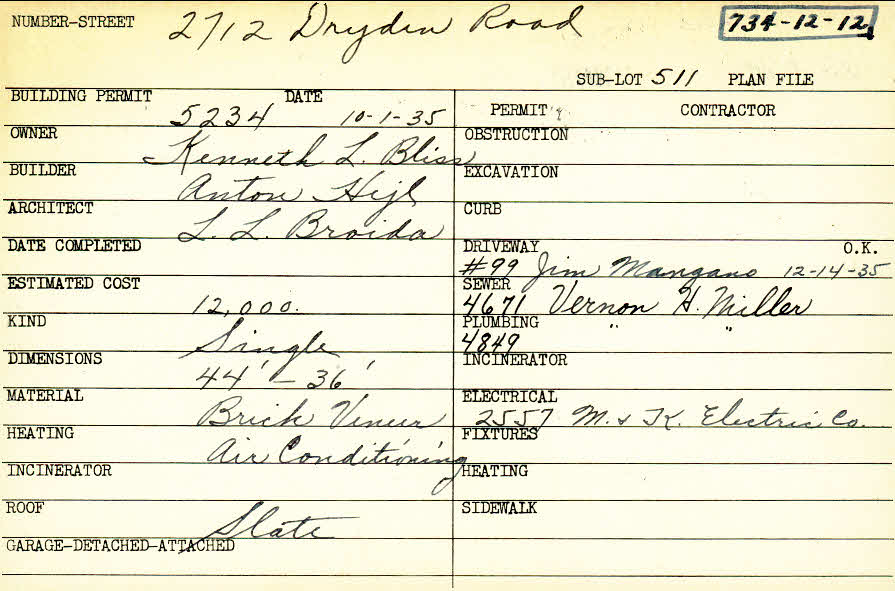 NUMBER-STREET 2712 Dryden Road 734-12-12
SUB-LOT 511 PLAN FILE
BUILDING PERMIT DATE
5234 10-1-35
PERMIT CONTRACTOR
OWNER Kenneth L. Bliss
OBSTRUCTION
BUILDER Anton Hijl
EXCAVATION
ARCHITECT L. L. Broida
CURB
DATE COMPLETED
DRIVEWAY O.K.
#99 Jim Mangano 12-14-35
ESTIMATED COST 12,000.
SEWER
4671 Vernon H. Miller
KIND Single
PLUMBING " "
4849
DIMENSIONS 44' - 36'
INCINERATOR
MATERIAL Brick Veneer
ELECTRICAL
2557 M. & K. Electric Co.
HEATING Air Conditioning
FIXTURES
INCINERATOR
HEATING
ROOF Slate
SIDEWALK
GARAGE-DETACHED-ATTACHED